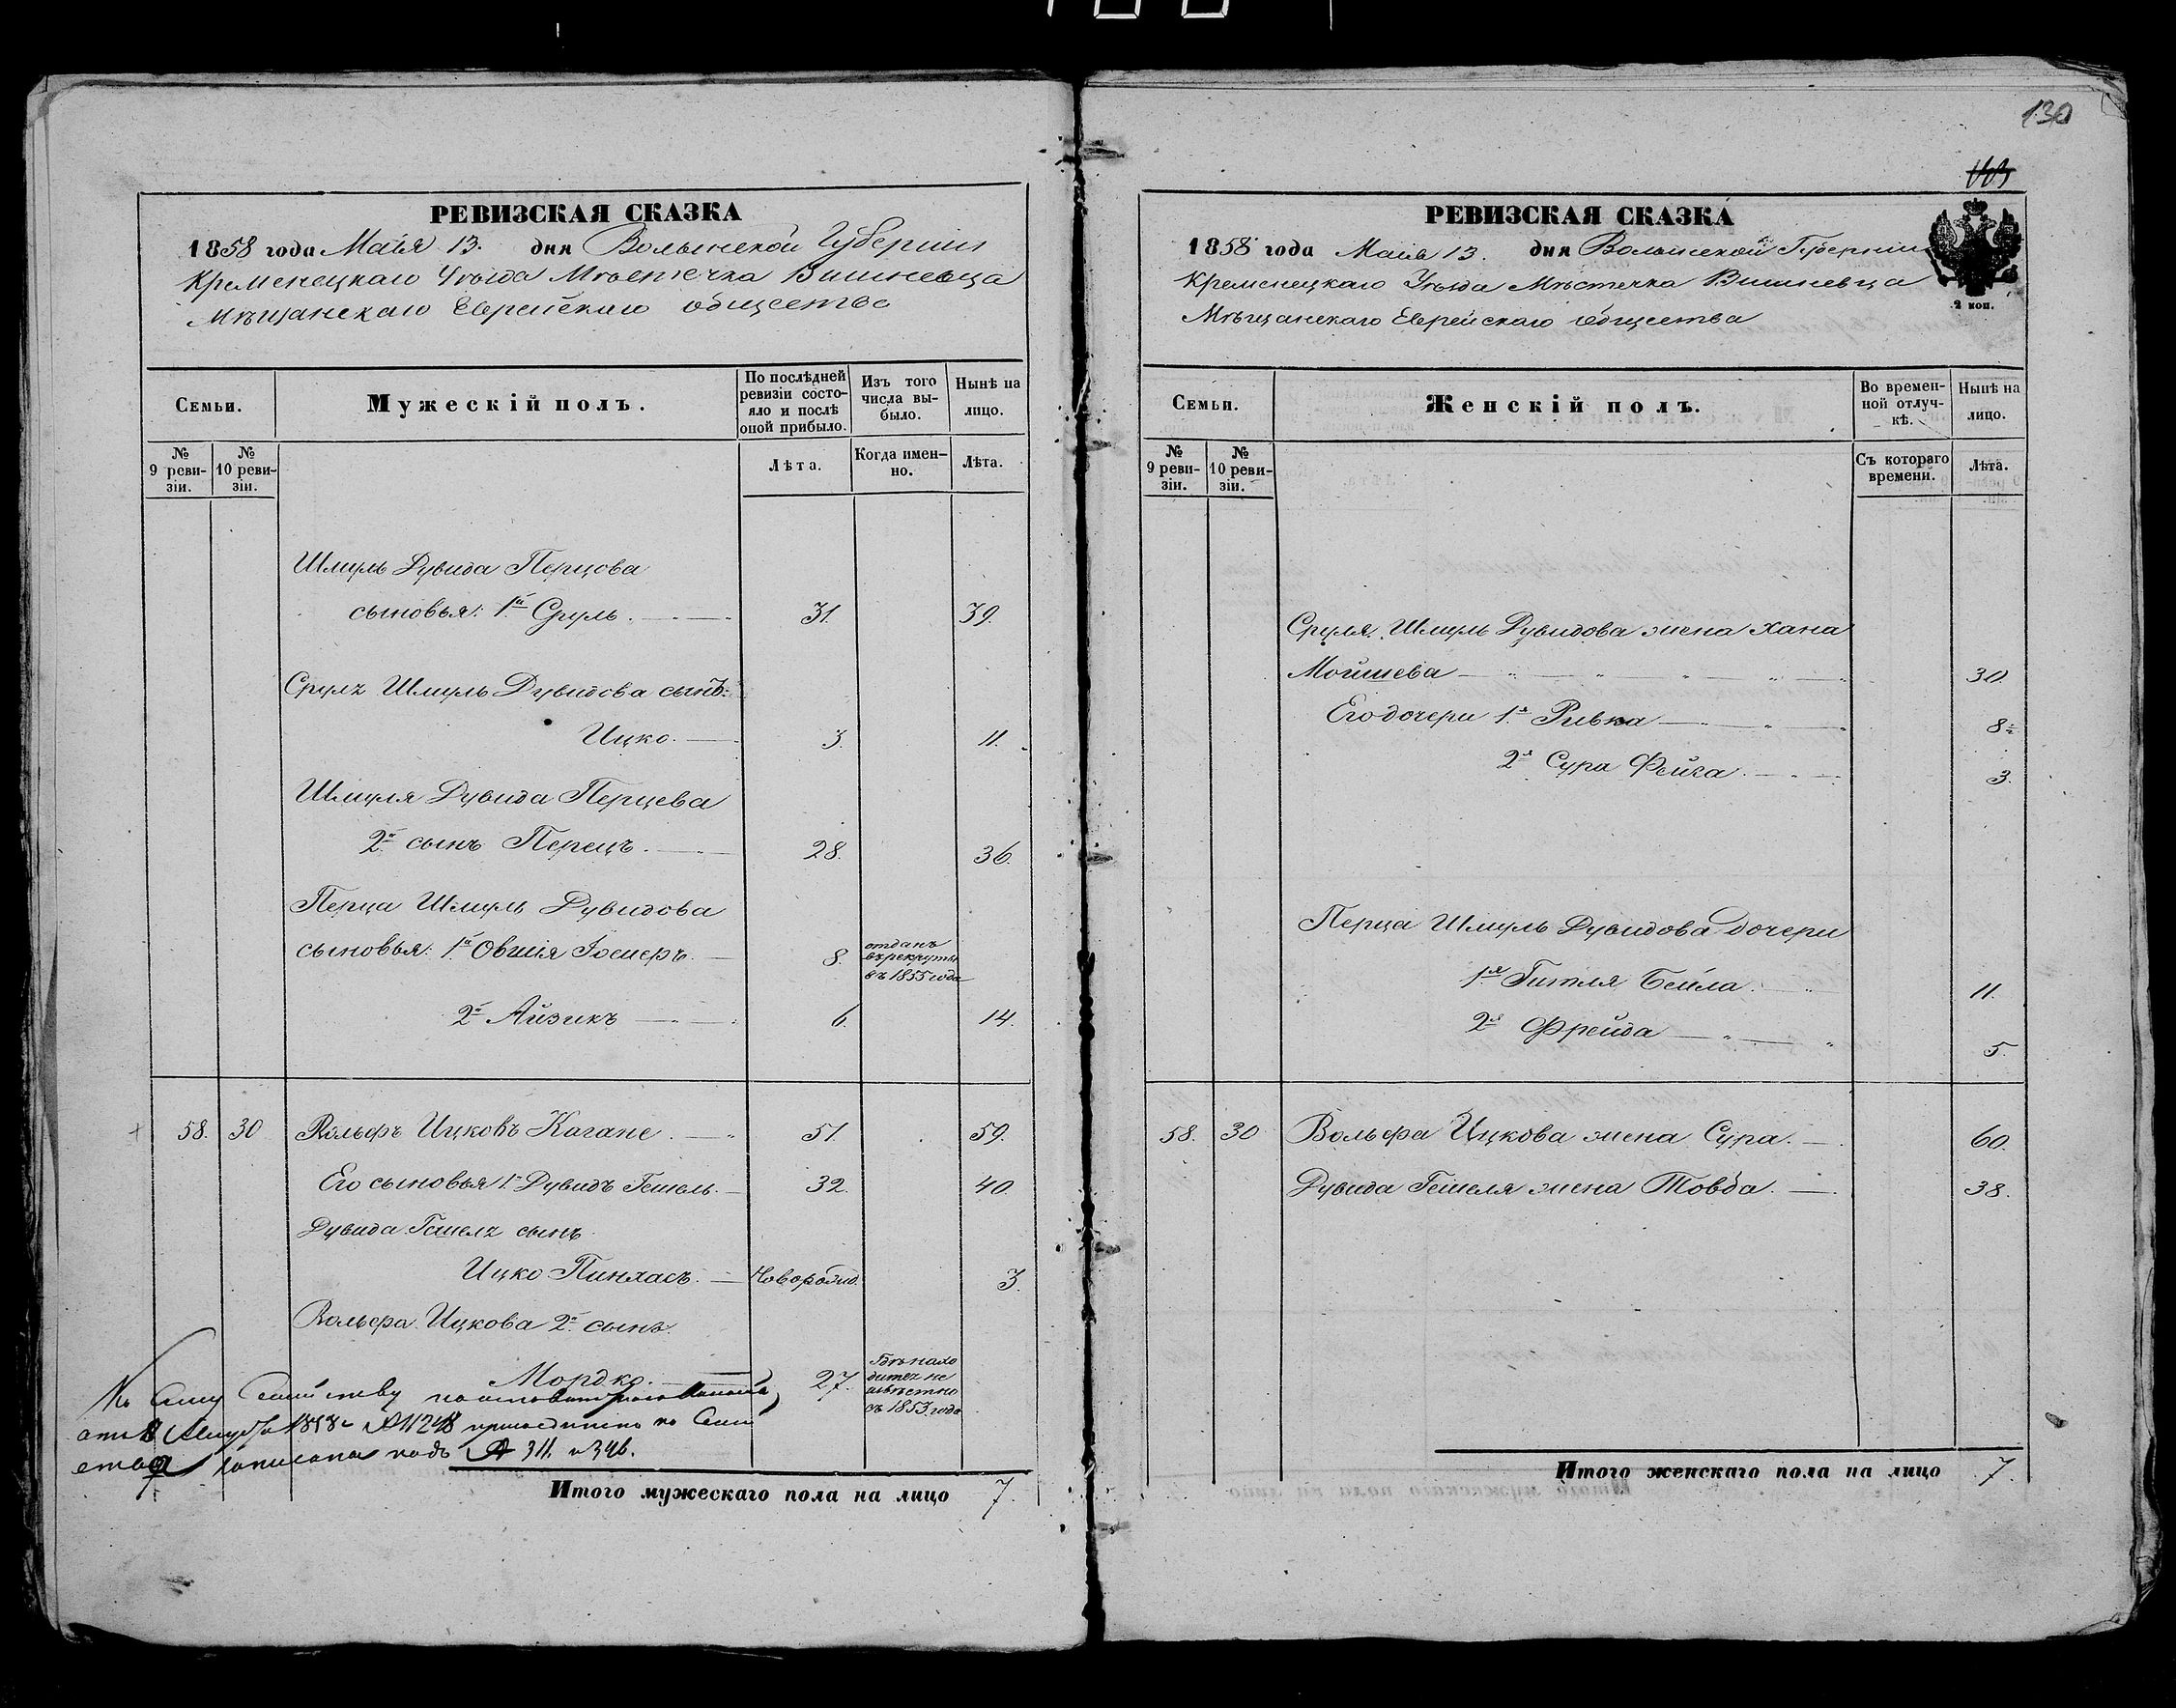 130
103
РЕВИЗСКАЯ СКАЗКА
1858 года Маія 13. дня Волынской Губерніи
Кременецкаго Уѣзда Мѣстечка Вишневца
Мѣщанскаго Еврейскаго общество
Семьи.
Мужескій полъ.
По послѣдней ревизіи состояло и послѣ оной прибыло.
Изъ того числа выбыло.
Нынѣ на лицо.
№ 9 ревизіи.
№ 10 ревизіи.
Лѣта.
Когда именно.
Лѣта.
Шмуль Дувида Перцова
сыновья: 1й Сруль. 31. 39.
Сруля Шмуль Дувидова сынъ:
Ицко. 3. 11.
Шмуля Дувида Перцева
2й сынъ Перецъ. 28. 36.
Перца Шмуль Дувидова
сыновья: 1й Овшія Іосиеръ. 8. отданъ
въ рекруты
съ 1855 года
2й Айзикъ 6. 14.
58. 30 Вольфъ Ицковъ Кагане. 51. 59.
Его сыновья 1й Дувидъ Гешель. 32. 40.
Дувида Гешеля сынъ
Ицко Пинхасъ. Новорожд. 3.
Вольфа Ицкова 2й сынъ.
Мордко. 27. Гдѣ находитея не
извѣстно
съ 1853 года
Къ сему Семейству
1858 № 11248 присоединено
записана подъ № 311. и 346.
Итого мужескаго пола на лицо 7.
РЕВИЗСКАЯ СКАЗКА
1858 года Маія 13. дня Волынской Губерніи
Кременецкаго Уѣзда Мѣстечка Вишневца
Мѣщанскаго Еврейскаго общества
2 коп.
Семьи.
Женскій полъ.
Во временной отлучкѣ.
Нынѣ на лицо.
№ 9 ревизіи.
№ 10 ревизіи.
Съ котораго времени.
Лѣта.
Сруля Шмуль Дувидова жена Хана
Мойшева 30.
Его дочери 1я Ривка 8½
2я Сура Фейга. 3.
Перца Шмуль Дувидова дочери
1я Гитля Бейла. 11.
2я Фрейда 5.
58. 30 Вольфа Ицкова жена Сура. 60.
Дувида Гешеля жена Товба. 38.
Итого женскаго пола на лицо 7.